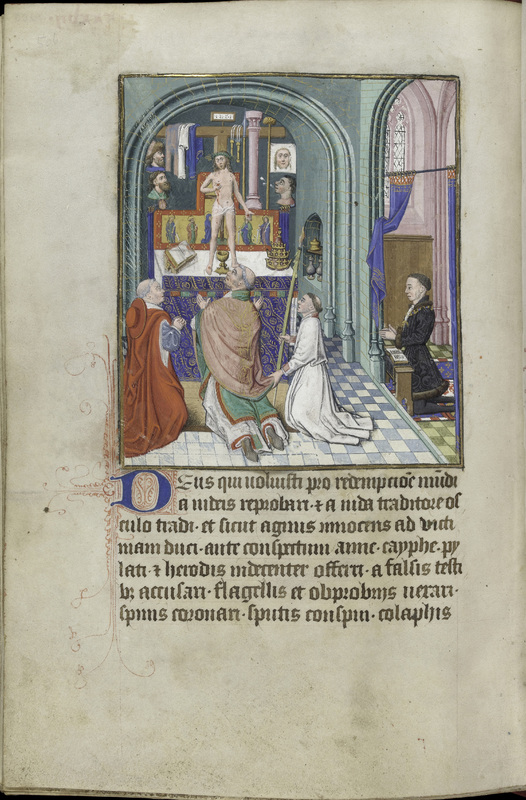 INRI
Deus qui voluisti pro redempcioe mudi
a iudeis reprobari · & a iuda traditore os
culo tradi · et sicut agnus innocens ad victi
mam duci · ante conspectum anne · cayphe · py
lati · & herodis indecenter offerri · a falsis testi
bz accusari · flagellis et obprobriis vexari ·
spinis coronari · sputis conspui · colaphis